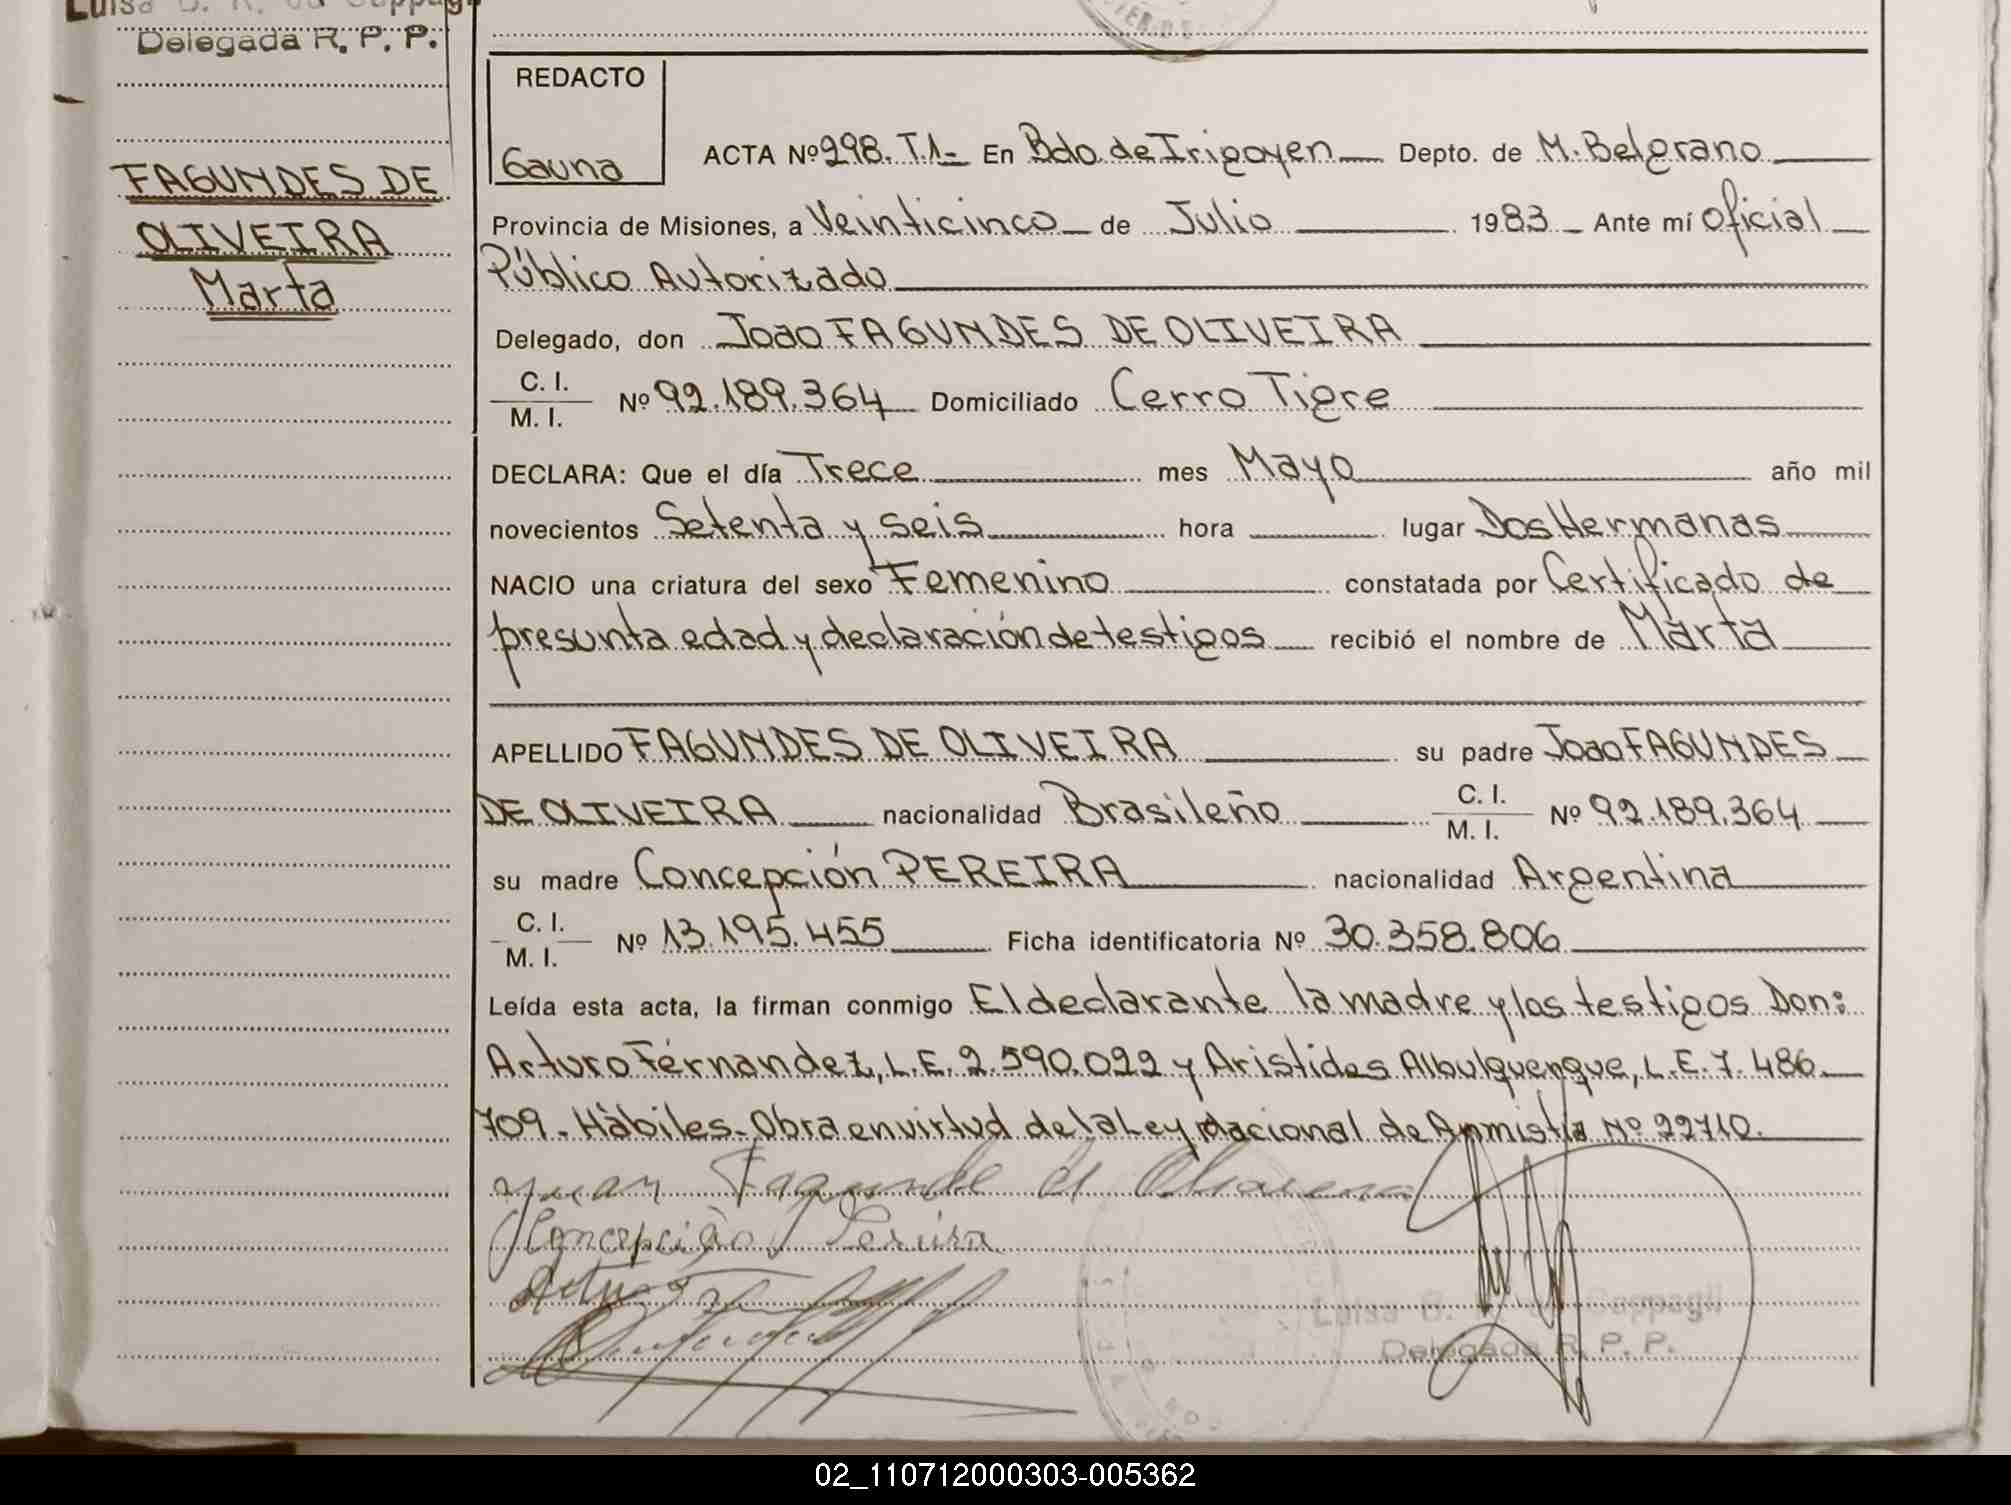 Delegada R. P. P.
FAGUNDES DE
OLIVEIRA
Marta
REDACTO
Gauna
ACTA Nº 298. T.1- En Bdo. de Irigoyen Depto. de M. Belgrano
Provincia de Misiones, a Veinticinco de Julio 1983 Ante mí Oficial
Público Autorizado
Delegado, don Joao FAGUNDES DE OLIVEIRA
C. I.
M. I. Nº 92.189.364 Domiciliado Cerro Tigre
DECLARA: Que el día Trece mes Mayo año mil
novecientos Setenta y seis hora lugar Dos Hermanas
NACIO una criatura del sexo Femenino constatada por Certificado de
presunta edad y declaración de testigos recibió el nombre de Marta
APELLIDO FAGUNDES DE OLIVEIRA su padre Joao FAGUNDES
DE OLIVEIRA nacionalidad Brasileño C. I. M. I. Nº 92.189.364
su madre Concepción PEREIRA nacionalidad Argentina
C. I.
M. I. Nº 13.195.455 Ficha identificatoria Nº 30.358.806
Leída esta acta, la firman conmigo El declarante la madre y los testigos Don:
Arturo Fernandez, L.E. 2.590.022 y Aristides Albulquenque, L.E. 7.486.
709- Hábiles- Obra en virtud de la Ley Nacional de Anmistia Nº 22710.
Juan Fagunde de Oliveira
Concepción Pereira
Luisa B. Cappagli
Delegada R. P. P.
02_110712000303-005362